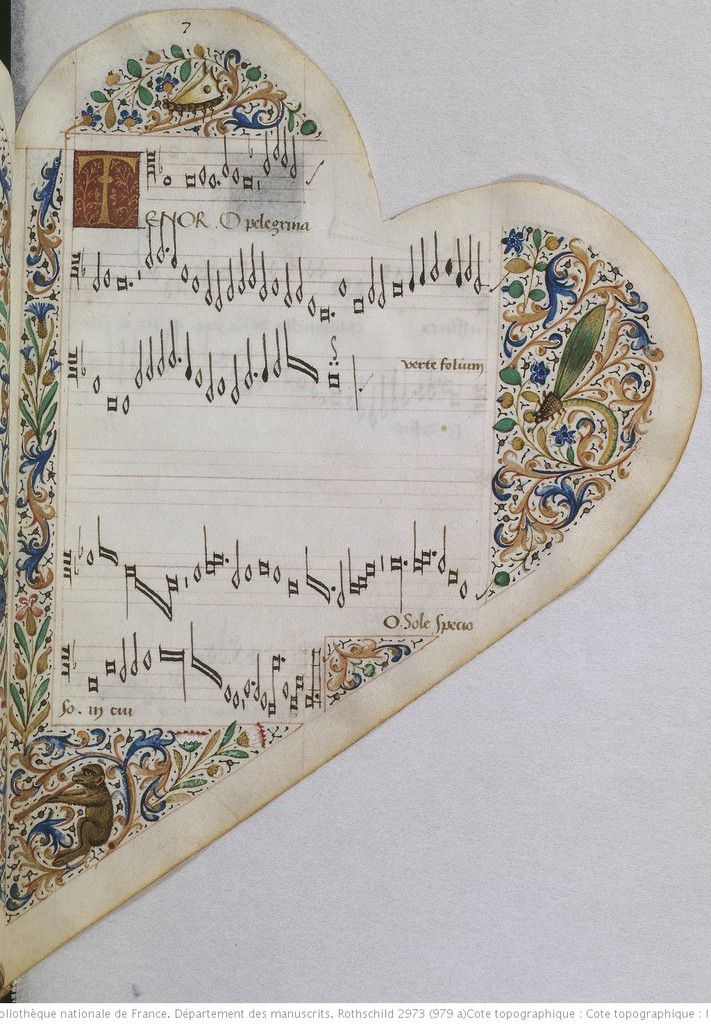 7
TENOR. O pelegrina
verte folium
O Sole specio
so. in cui
bliothèque nationale de France. Département des manuscrits. Rothschild 2973 (979 a)Cote topographique : Cote topographique : I